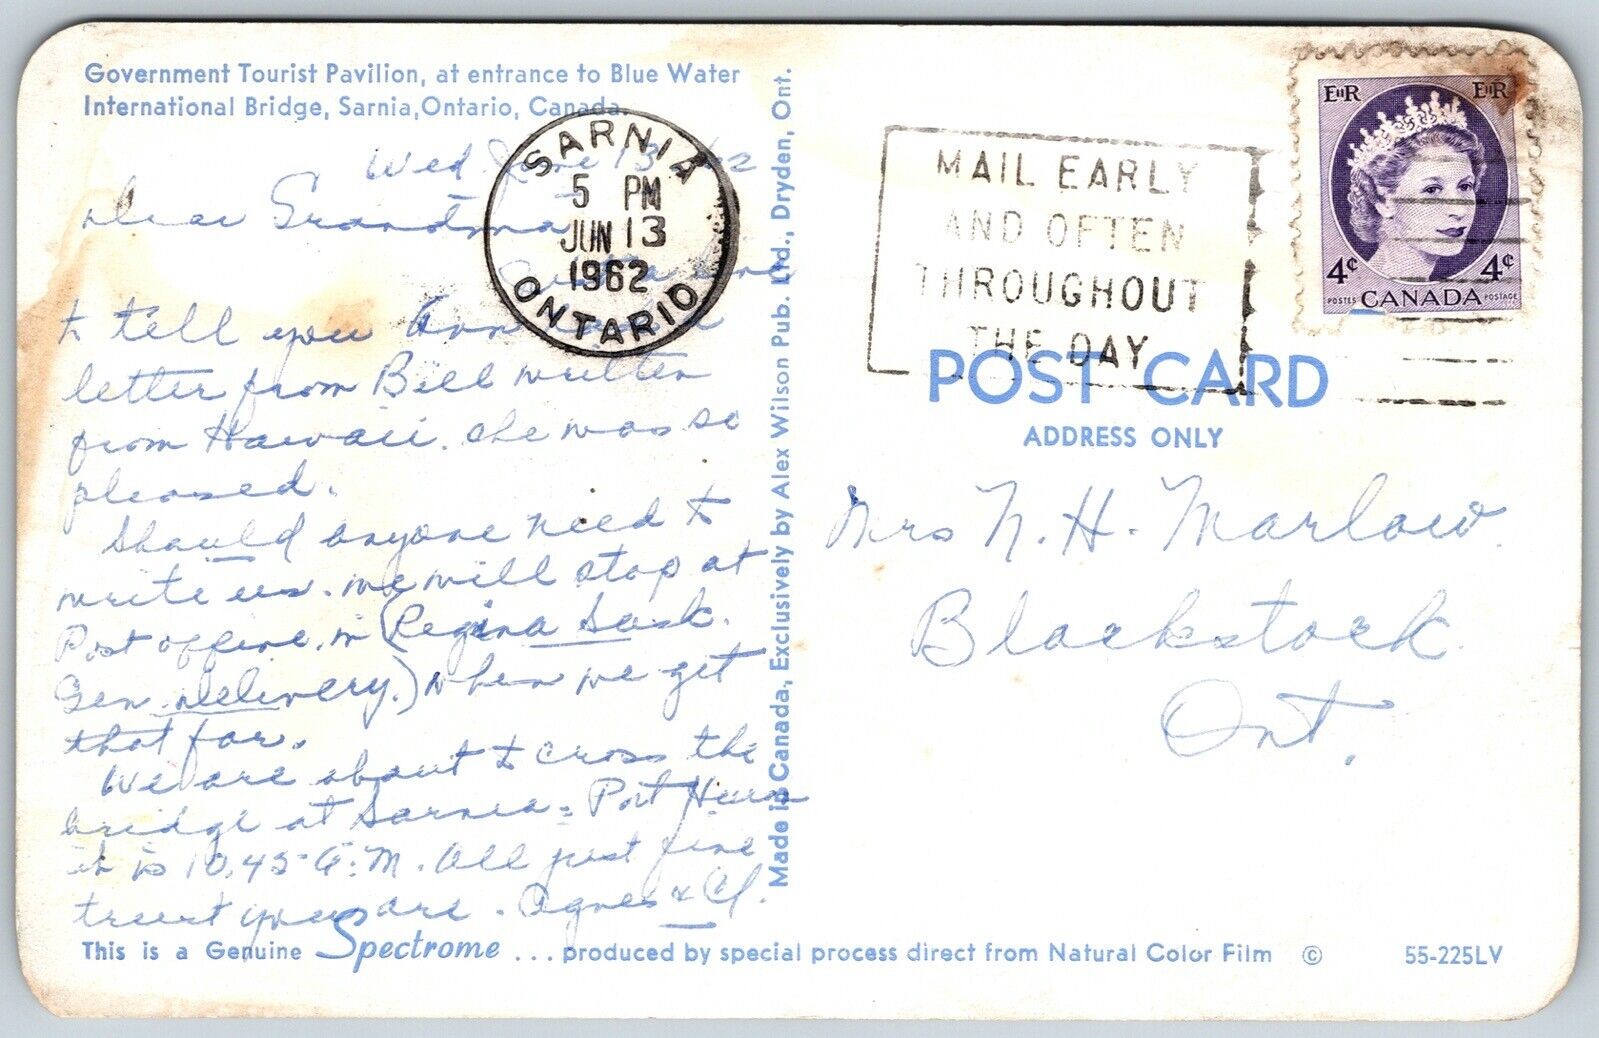 Government Tourist Pavilion, at entrance to Blue Water
International Bridge, Sarnia, Ontario, Canada.
Wed. June 13 62
Dear Grandma
to tell you Ann
letter from Bill written
from Hawaii. She was so
pleased.
Should anyone need to
write us. we will stop at
Post office, in (Regina Sask.
Gen. Delivery.) when we get
that far.
We are about to cross the
bridge at Sarnia = Port Huron
it is 10.45 A.M. All just fine
trust you are. Agnes &
SARNIA
5 PM
JUN 13
1962
ONTARIO
Made in Canada., Exclusively by Alex Wilson Pub. Ltd., Dryden, Ont.
MAIL EARLY
AND OFTEN
THROUGHOUT
THE DAY
EIIR EIIR
4¢ 4¢
POSTES CANADA POSTAGE
POST CARD
ADDRESS ONLY
Mrs N. H. Marlow.
Blackstock
Ont.
This is a Genuine Spectrome ... produced by special process direct from Natural Color Film © 55-225LV